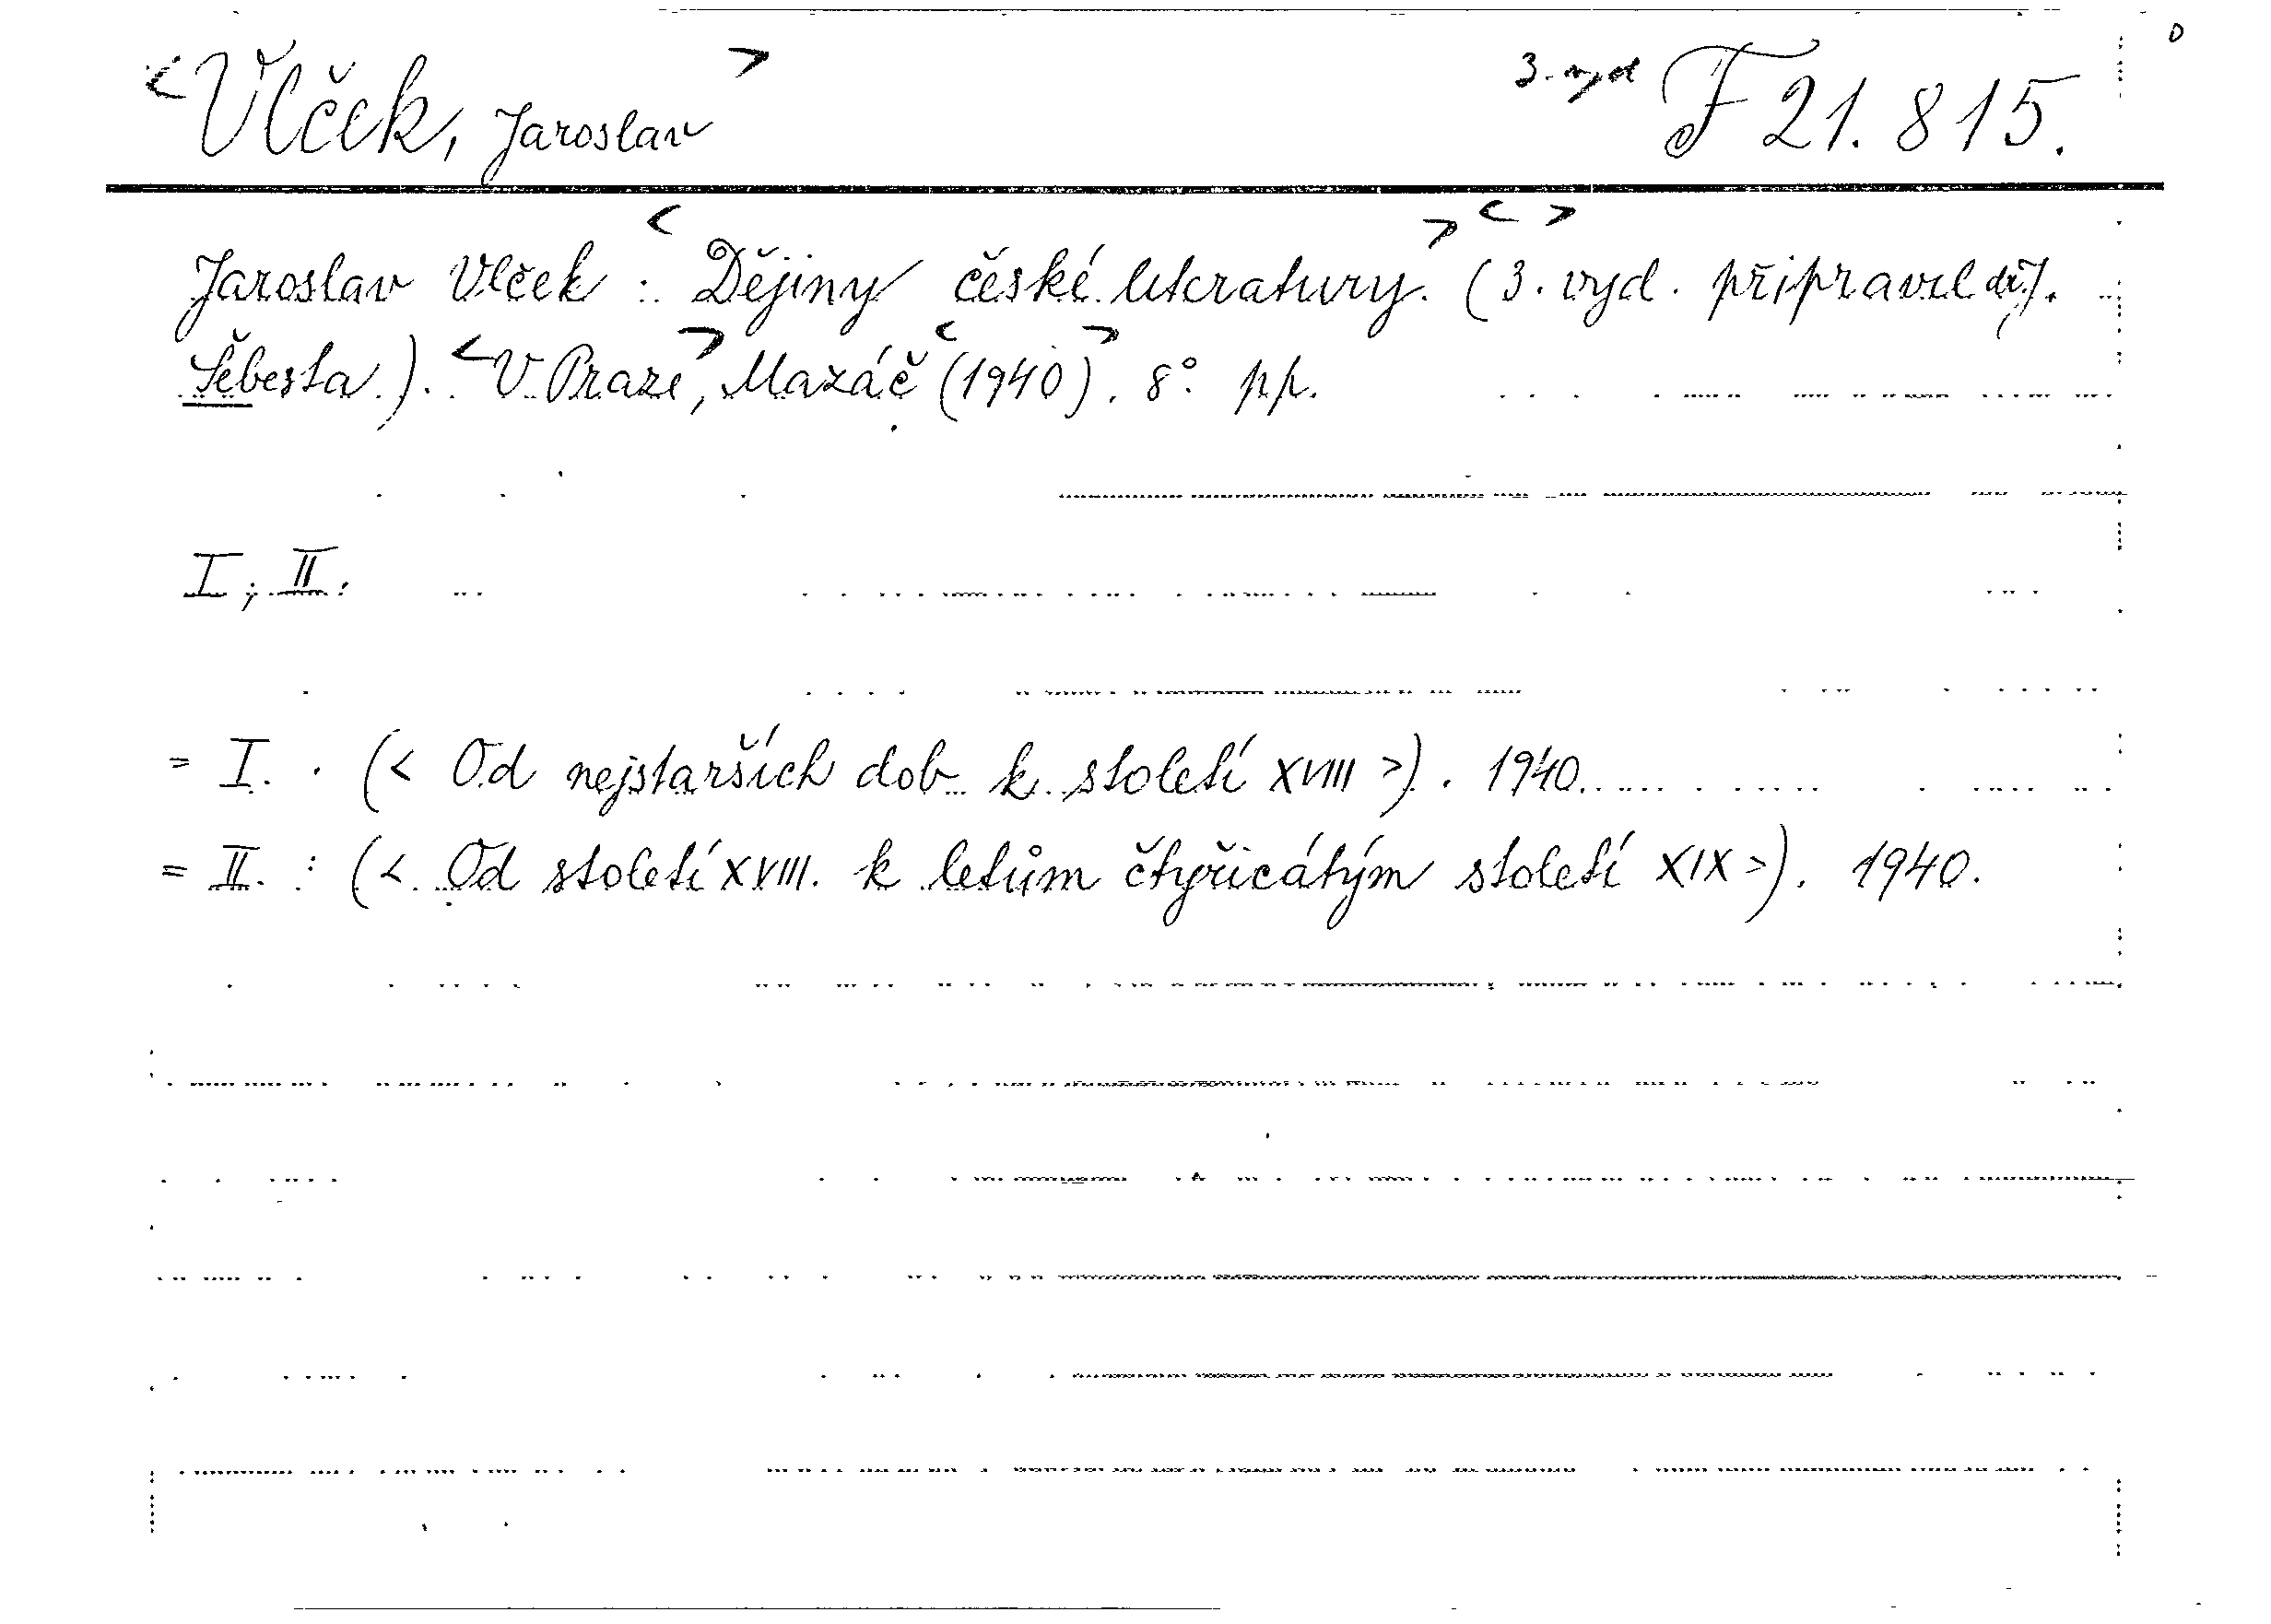 <Vlček, Jaroslav> 3. vyd F 21.815.
Jaroslav Vlček : <Dějiny české literatury.> (<3.> vyd. připravil dr. J.
Šebesta.). <V Praze>, Mazáč <(1940)>. 8° pp.
I, II.
= I. : (< Od nejstarších dob k století XVIII >). 1940.
= II. : (< Od století XVIII. k letům čtyřicátým století XIX >). 1940.